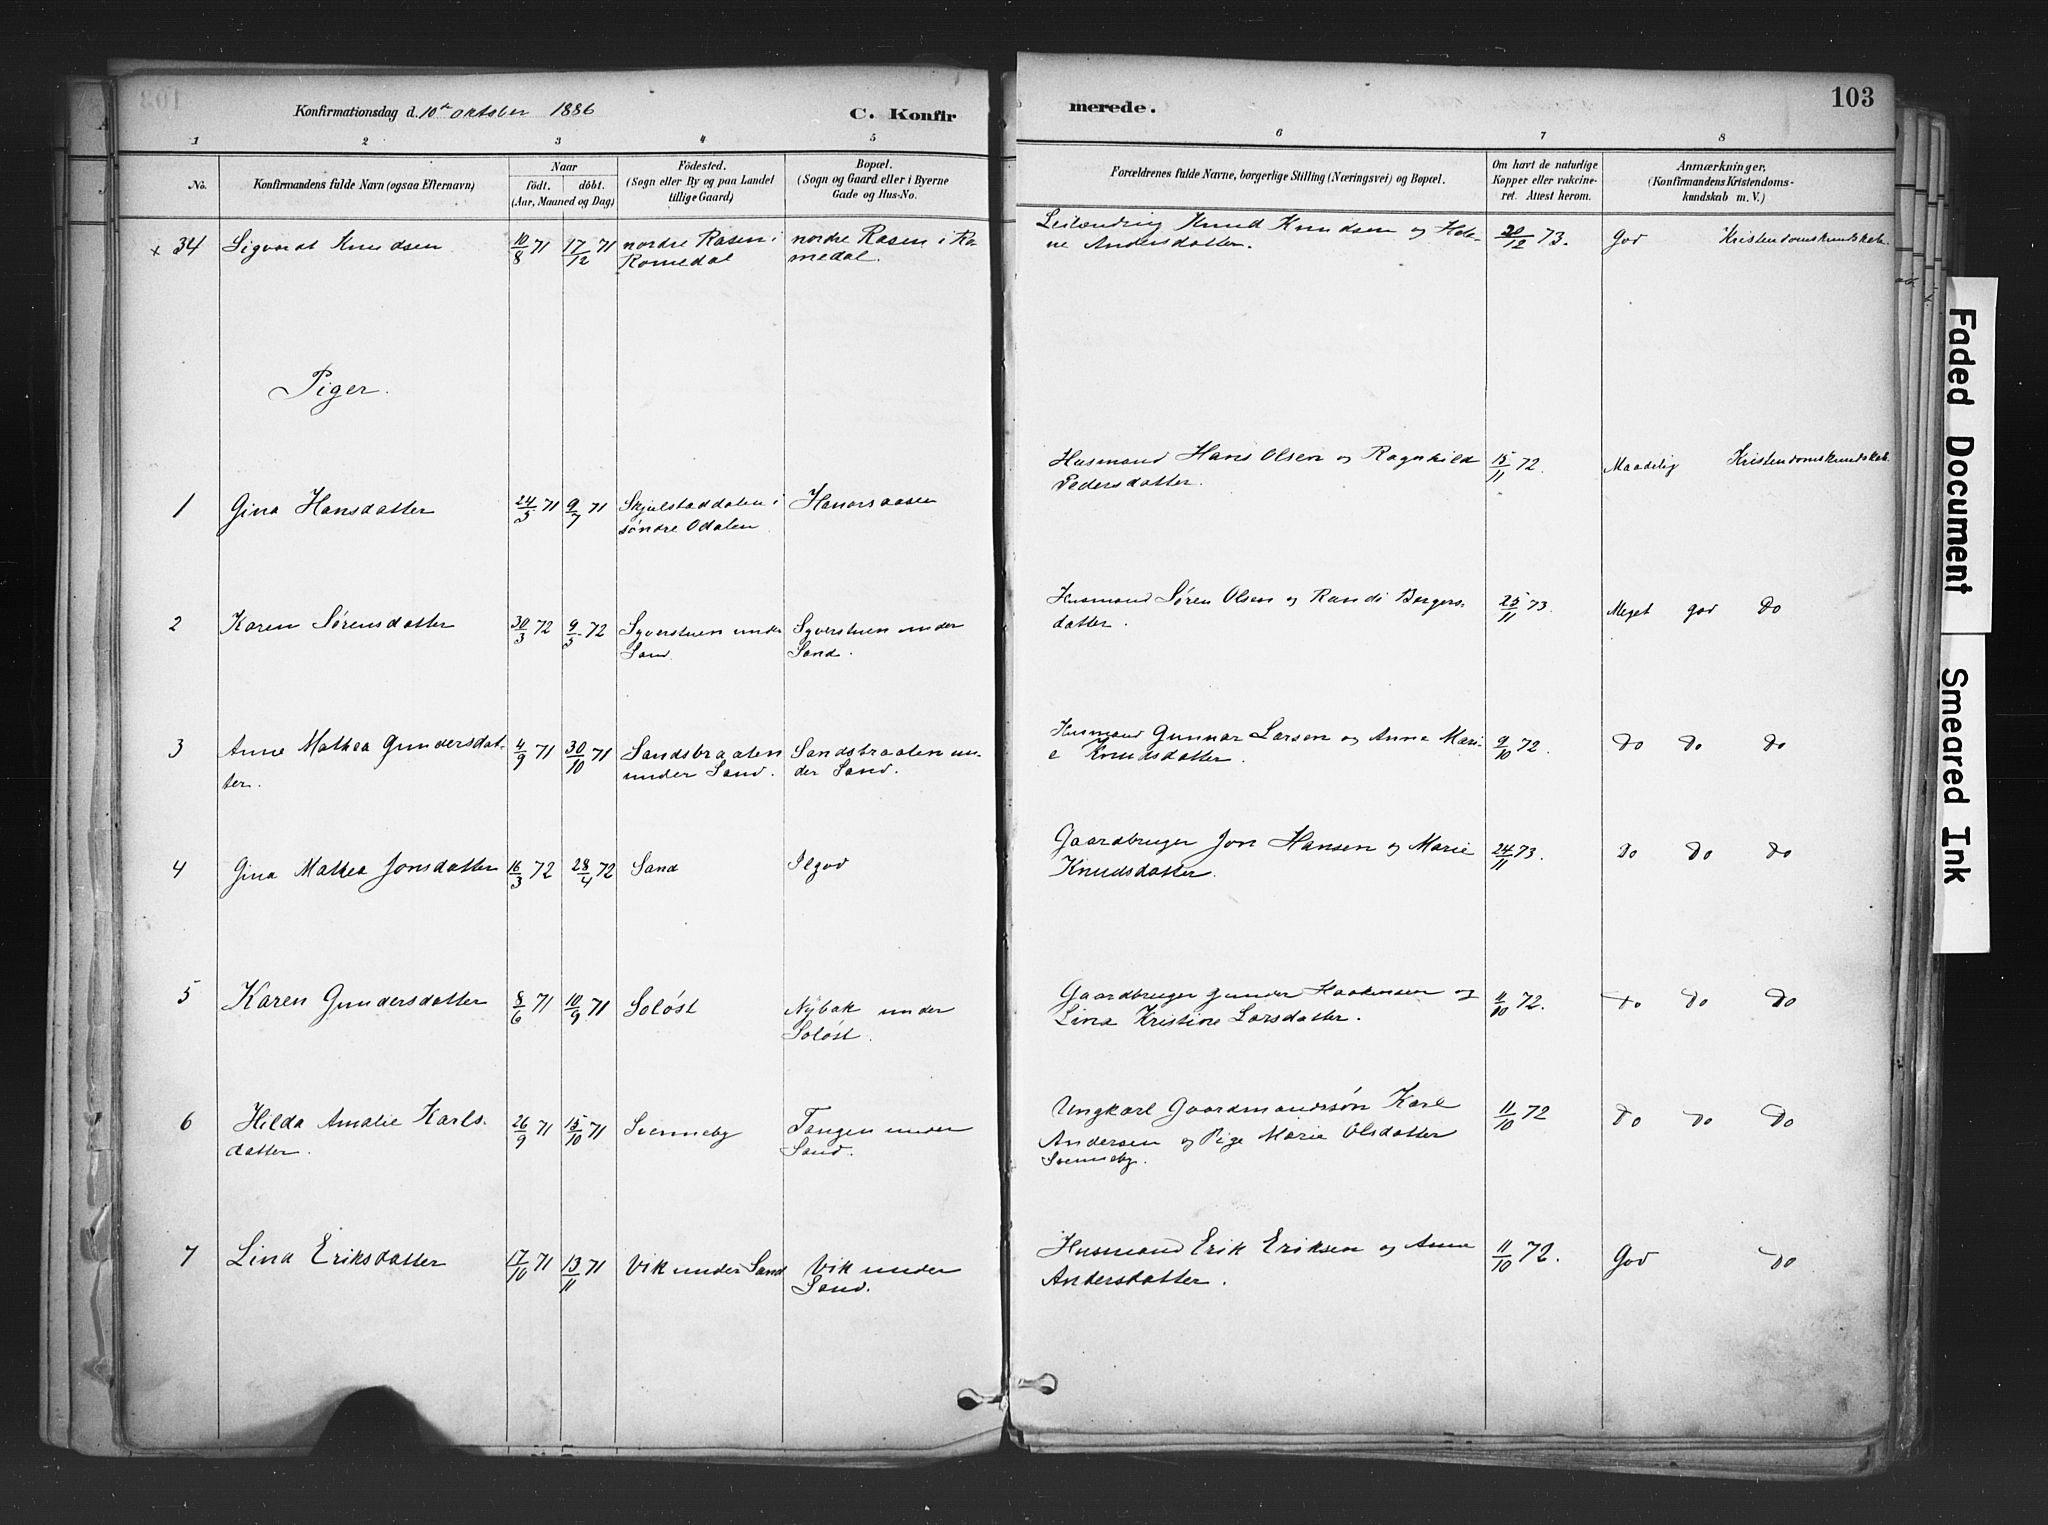 Konfirmationsdag d. 10de oktober 1886
C. Konfir
merede.
103
1 2 3 4 5 6 7 8
No.
Konfirmandens fulde Navn (ogsaa Efternavn)
Naar
født. døbt.
(Aar, Maaned og Dag)
Fødested.
(Sogn eller By og paa Landet
tillige Gaard)
Bopæl.
(Sogn og Gaard eller i Byerne
Gade og Hus-No.
Forældrenes fulde Navne, borgerlige Stilling (Næringsvei) og Bopæl.
Om havt de naturlige
Kopper eller vakcine-
ret. Attest herom.
Anmærkninger,
(Konfirmandens Kristendoms-
kundskab m. V.)
x 34 Sigvardt Knudsen 10/8 71 17/12 71 nordre Rasen i nordre Rasen i Ro- Leilænding Knud Knudsen og Hele- 20/12 73. God Kristendomskundskab.
Romedal medal. ne Andersdatter.
Piger.
Husmand Hans Olsen og Ragnhild 15/11 72. Maadelig Kristendomskundskab.
Pedersdatter.
1 Gina Hansdatter 24/5 71 9/7 71 Skjulstaddalen i
søndre Odalen
2 Karen Sørensdatter 30/3 72 9/5 72 Syverstuen under Syverstuen under Husmand Søren Olsen og Randi Borgers- 25/11 73. Meget god Do
Sand Sand. datter.
3 Anne Mathea Gundersdat- 4/9 71 30/10 71 Sandsbraaten Sandsbraaten un- Husmand Gunnar Larsen og Anne Mari- 9/10 72. Do Do Do
ter. under Sand. der Sand. e Knudsdatter.
4 Gina Mathea Jonsdatter 16/3 72 28/4 72 Sand Gaardbruger Jon Hansen og Marie 24/11 73. Do Do Do
Knudsdatter.
5 Karen Gundersdatter 8/6 71 10/9 71 Soløst Nybak under Gaardbruger Gunder Haakensen og 11/10 72. Do Do Do
Soløst. Lina Kristine Larsdatter.
6 Hilda Amalie Karls- 26/9 71 15/10 71 Svenneby Tangen under Ungkarl Gaardmandssøn Karl 11/10 72 Do Do Do
datter. Sand. Andersen og Pige Marie Olsdatter
Svenneby.
7 Lina Eriksdatter 17/10 71 13/11 71 Vik under Sand Vik under Husmand Erik Eriksen og Anne 11/10 72. God Do
Sand. Andersdatter.
Faded Document
Smeared Ink